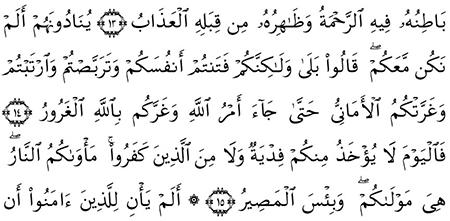 بَاطِنُهُۥ فِيهِ ٱلرَّحْمَةُ وَظَـٰهِرُهُۥ مِن قِبَلِهِ ٱلْعَذَابُ ﴿١٣﴾ يُنَادُونَهُمْ أَلَمْ
نَكُن مَّعَكُمْ ۖ قَالُوا۟ بَلَىٰ وَلَـٰكِنَّكُمْ فَتَنتُمْ أَنفُسَكُمْ وَتَرَبَّصْتُمْ وَٱرْتَبْتُمْ
وَغَرَّتْكُمُ ٱلْأَمَانِىُّ حَتَّىٰ جَآءَ أَمْرُ ٱللَّهِ وَغَرَّكُم بِٱللَّهِ ٱلْغَرُورُ ﴿١٤﴾
فَٱلْيَوْمَ لَا يُؤْخَذُ مِنكُمْ فِدْيَةٌ وَلَا مِنَ ٱلَّذِينَ كَفَرُوا۟ ۚ مَأْوَىٰكُمُ ٱلنَّارُ ۖ
هِىَ مَوْلَىٰكُمْ ۖ وَبِئْسَ ٱلْمَصِيرُ ﴿١٥﴾ ۞ أَلَمْ يَأْنِ لِلَّذِينَ ءَامَنُوٓا۟ أَن